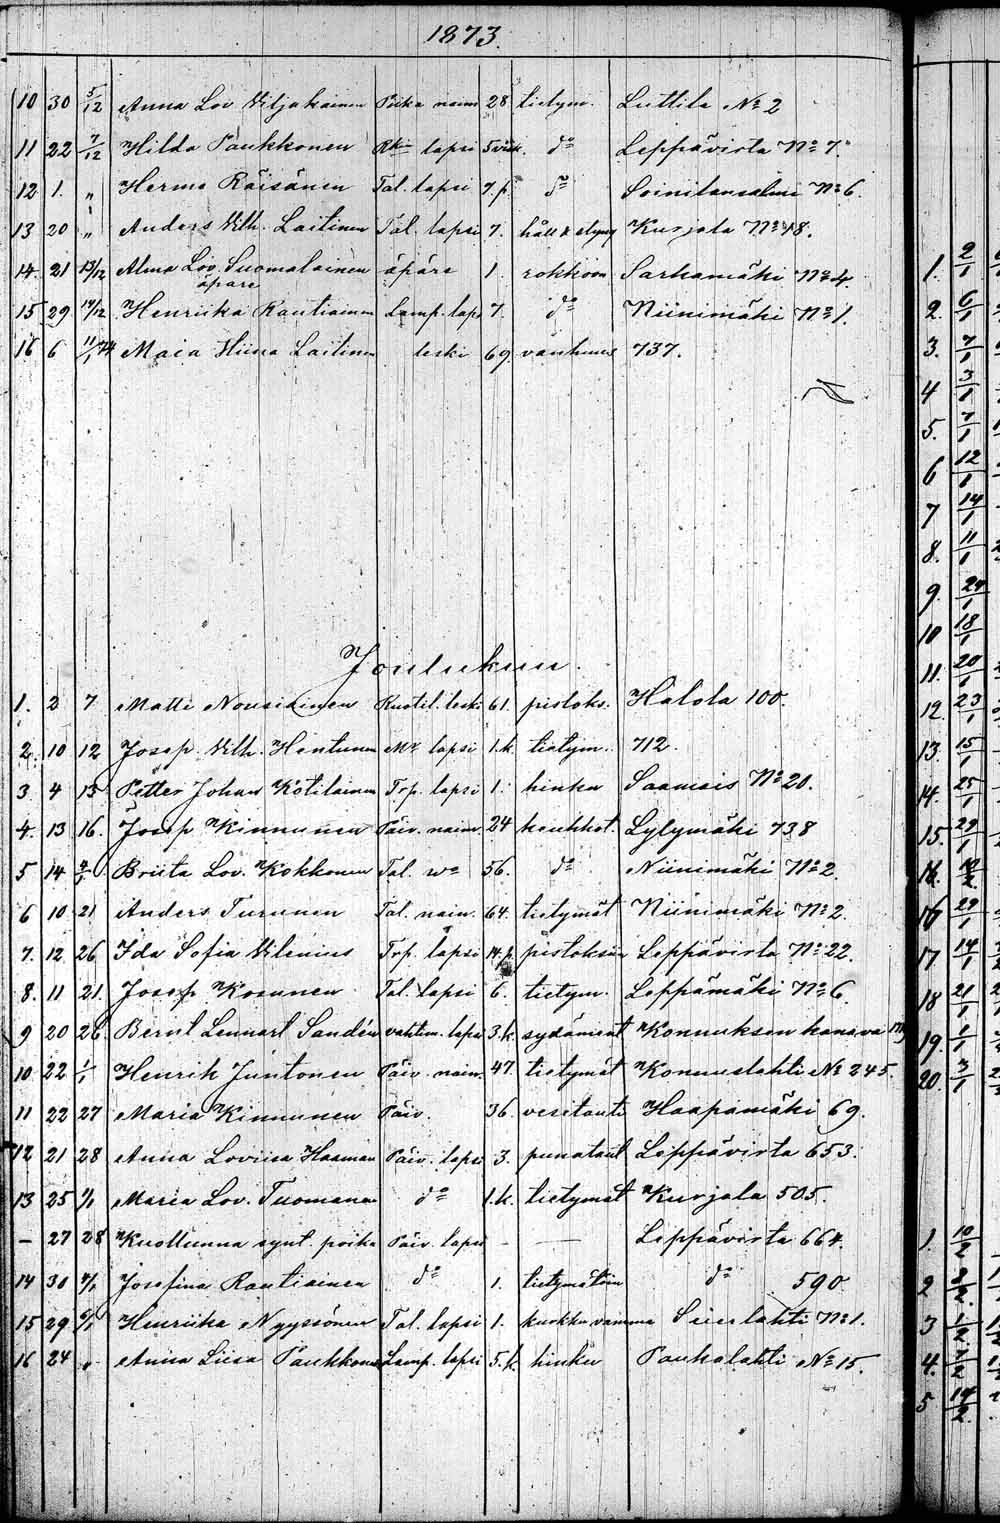 1873.
10 30 5/12 Anna Lov. Viljakainen Poika naim 28 tietym. Luttila No 2
11 22 7/12 Hilda Paukkonen Rkn lapsi 5 viik. do Leppävirta No 7.
12 1. " Herma Räisänen Tal. lapsi 7. p. do Soinilansalmi No 6.
13 20 " Anders Vilh. Laitinen Tal. lapsi 7. håll & styng Kurjala No 48.
14. 21 13/12 Alma Lov. Suomalainen äpäre 1. rokkoon Sarkamäki No 4.
äpare
15 29 14/12 Henriika Rautiainen Lamp. laps 7. do Niinimäki No 1.
16 6 11/1 74 Maia Hiina Laitinen leski 69. vanhuus 737.
Joulukuu.
1. 2 7 Matti Nousiainen Ruotil. leski 61. pistoks. Halola 100.
2. 10 12 Josep. Vilh. Hentunen Mk lapsi 1.k. tietym. 712.
3 4 15 Petter Johan Kotilainen Trp. lapsi 1. hinku Saamais No 20.
4. 13 16. Josep Kinnunen Päiv. naim. 24 keuhkot. Lylymäki 738
5 14 4/1 Briita Lov. Kokkonen Tal. wa 56. do Niinimäki No 2.
6 10 21 Anders Turunen Tal. naim. 64. tietymät Niinimäki No 2.
7. 12 26 Ida Sofia Vilenius Trp. lapsi 14.p. pistoksiin Leppävirta No 22.
8. 11 21. Josef Kosunen Tal. lapsi 6. tietym. Leppämäki No 6.
9 20 26. Bernt Lennart Sandén vahtm. lapsi 3.k. sydäment Konnuksen kanava
10 22 1/1 Henrik Juntonen Päiv. naim. 47. tietymät Konnuslahti No 245.
11 22 27 Maria Kinnunen Päiv. 36. vesitauti Haapamäki 69.
12 21 28 Anna Loviisa Haaman Päiv. lapsi 3. punataut Leppävirta 653.
13 25 1/1 Maria Lov. Tuomana do 1.k. tietymät Kurjala 505.
– 27 28 Kuolluna synt. poika Päiv. lapsi – Leppävirta 664.
14 30 4/1 Josefina Rautiainen do 1. tietymätöin do 590
15 29 6/1 Henriika Nyyssönen Tal. lapsi 1. kurkku vamma Sierlahti No 1.
16 24 " Anna Liisa Paukkonen Lamp. lapsi 5.k. hinku Paukolahti No 15.
1. 2/1
2. 6/1
3. 7/1
4 3/1
5. 7/1
6 12/1
7 14/1
8. 11/1
9. 24/1
10 18/1
11. 20/1
12. 23/1
13. 15/1
14. 25/1
15. 29/1
16. 10/2
16 29/1
17 14/1
18 21/1
19. 1/1
20. 3/1
1. 10/2
2 8/2.
3 1/2.
4. 7/2
5 14/2.